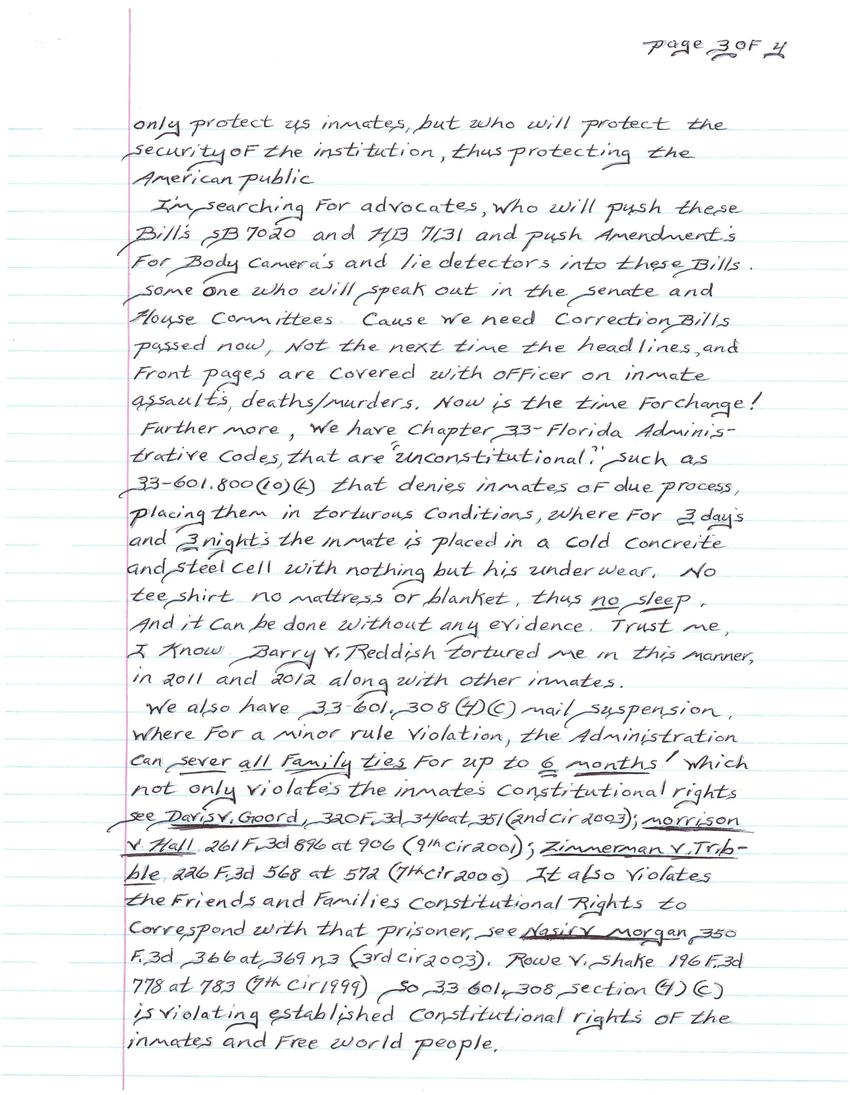 page 3 OF 4
only protect us inmates, but who will protect the
security OF the institution, thus protecting the
American public
I'm searching For advocates, who will push these
Bill's SB 7020 and HB 7131 and push Amendment's
For Body Camera's and lie detectors into these Bills.
some one who will speak out in the senate and
House Committees. Cause we need Correction Bills
passed now, Not the next time the headlines, and
Front pages are Covered with officer on inmate
assault's, deaths/murders. Now is the time For change!
Further more, We have Chapter 33-Florida Adminis-
trative Codes, that are "unconstitutional." Such as
33-601.800(10)(L) that denies inmates of due process,
placing them in torturous Conditions, where For 3 day's
and 3 night's the inmate is placed in a Cold Concreite
and steel cell with nothing but his under wear. No
tee shirt no mattress or blanket, thus no sleep.
And it Can be done without any evidence. Trust me,
I Know Barry V. Reddish tortured me in this manner,
in 2011 and 2012 along with other inmates.
We also have 33-601.308(4)(C) mail suspension,
Where For a minor rule Violation, the Administration
Can sever all Family ties For up to 6 months! Which
not only violate's the inmate's Constitutional rights
see Davis v. Goord, 320 F.3d, 346 at 351 (2nd Cir 2003); morrison
v. Hall 261 F.3d 896 at 906 (9th Cir 2001); Zimmerman v. Trib-
ble, 226 F.3d 568 at 572 (7th Cir 2000) It also Violates
the Friends and Families Constitutional Rights to
Correspond with that prisoner, see Nasir v Morgan, 350
F.3d 366 at 369 n3 (3rd Cir 2003). Rowe v. Shake 196 F.3d
778 at 783 (7th Cir 1999) So 33 601.308 section (4)(C)
is violating established Constitutional right's OF the
inmates and Free world people.